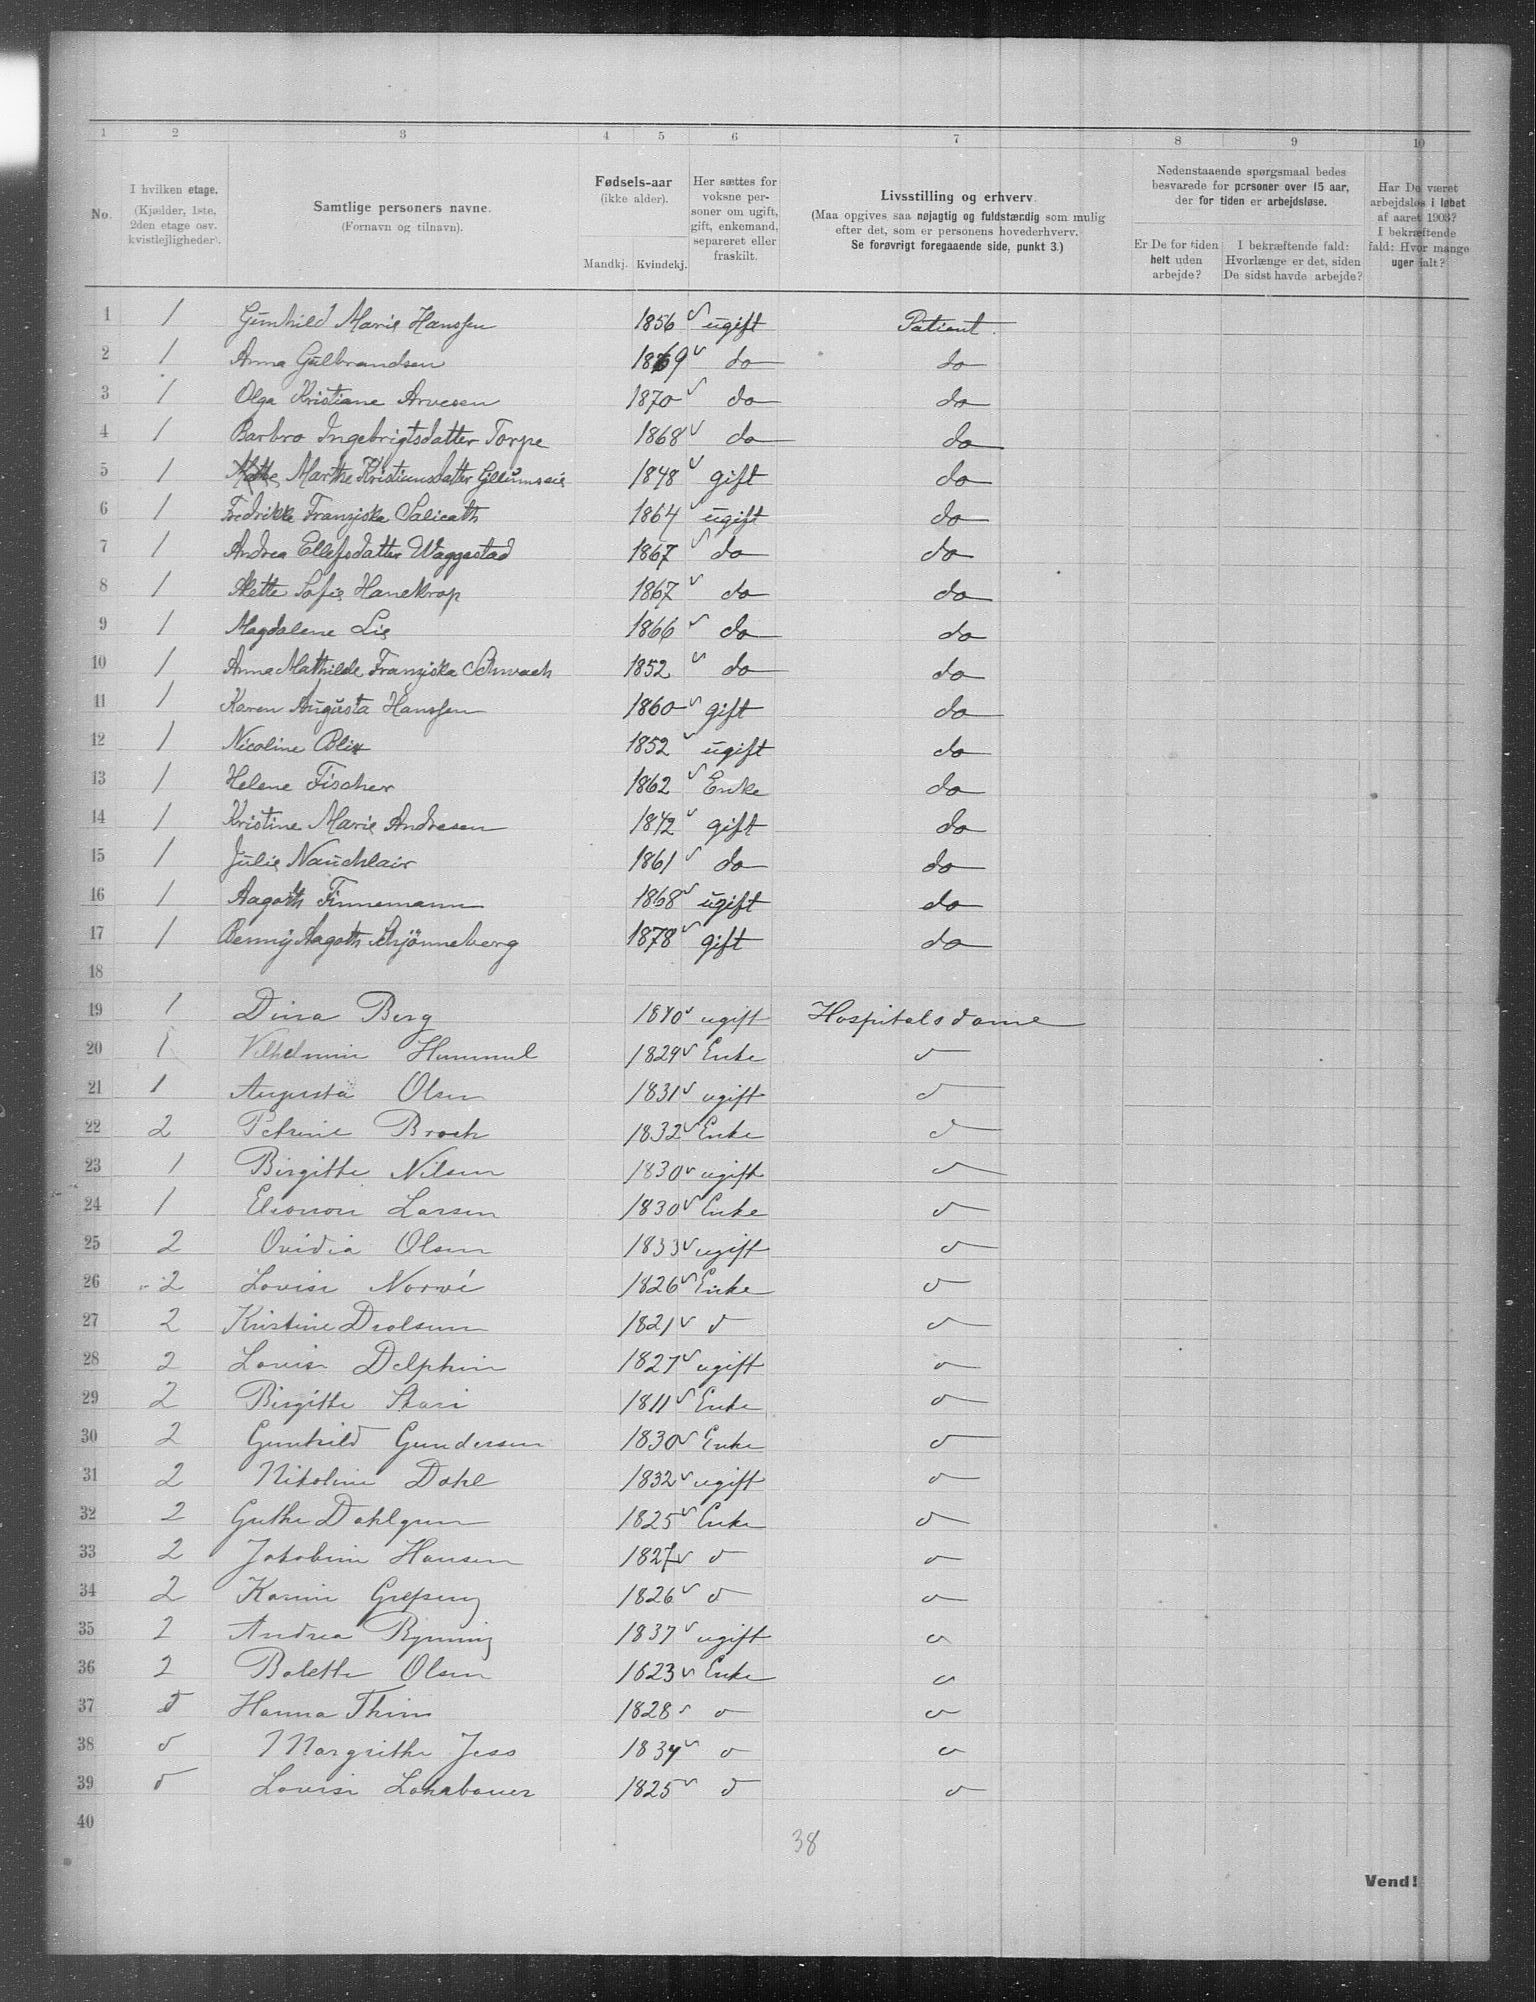 1 2 3 4 5 6 7 8 9 10
No.
I hvilken etage. (Kjælder, 1ste, 2den etage osv. kvistlejligheder).
Samtlige personers navne. (Fornavn og tilnavn).
Fødsels-aar (ikke alder). Mandkj. Kvindekj.
Her sættes for voksne personer om ugift, gift, enkemand, separeret eller fraskilt.
Livsstilling og erhverv. (Maa opgives saa nøjagtig og fuldstændig som mulig efter det, som er personens hovederhverv. Se forøvrigt foregaaende side, punkt 3.)
Nedenstaaende spørgsmaal bedes besvarede for personer over 15 aar, der for tiden er arbejdsløse.
Er De for tiden helt uden arbejde?
I bekræftende fald: Hvorlænge er det, siden De sidst havde arbejde?
Har De været arbejdsløs i løbet af aaret 1903? I bekræftende fald: Hvor mange uger ialt?
1 1 Gunhild Marie Hanssen 1856 ugift Patient.
2 1 Anna Gulbrandsen 1869 do do
3 1 Olga Kristiane Arvesen 1870 do do
4 1 Barbro Ingebrigtsdatter Torpe 1868 do do
5 1 Marthe Kristiansdatter 1848 gift do
6 1 Fredrikke Franziska Salicath 1864 ugift do
7 1 Andrea Ellefsdatter Waggestad 1867 do do
8 1 Mette Sofie Hanekrop 1867 do do
9 1 Magdalene Lie 1866 do do
10 1 Anna Mathilde Franziska Schwach 1852 do do
11 1 Karen Augusta Hanssen 1860 gift do
12 1 Nicoline Blix 1852 ugift do
13 1 Helene Fischer 1862 Enke do
14 1 Kristine Marie Andresen 1842 gift do
15 1 Julie Nauchlair 1861 do do
16 1 Aagoth Finnemann 1868 ugift do
17 1 Benny Aagoth Schjönneberg 1878 gift do
18
19 1 Dina Berg 1840 ugift Hospitalsdame
20 1 Vilhelmine Hummel 1829 Enke do
21 1 Augusta Olsen 1831 ugift do
22 2 Petrine Broch 1832 Enke do
23 1 Birgitte Nilsen 1830 ugift do
24 1 Elionore Larsen 1830 Enke do
25 2 Ovidia Olsen 1833 ugift do
26 2 Lovise Norvé 1826 Enke do
27 2 Kristine 1821 do do
28 2 Lovise Delphin 1827 ugift do
29 2 Birgitte Skari 1811 Enke do
30 2 Gunhild Gundersen 1830 Enke do
31 2 Nikoline Dahl 1832 ugift do
32 2 Dahlgren 1825 Enke do
33 2 Jakobine Hansen 1827 do do
34 2 Karine 1826 do do
35 2 Andrea Rynning 1837 ugift do
36 2 Bolette Olsen 1823 Enke do
37 do Hanna Thiis 1828 do do
38 do Margrethe Jess 1834 do do
39 do Lovise 1825 do do
40
38
Vend!